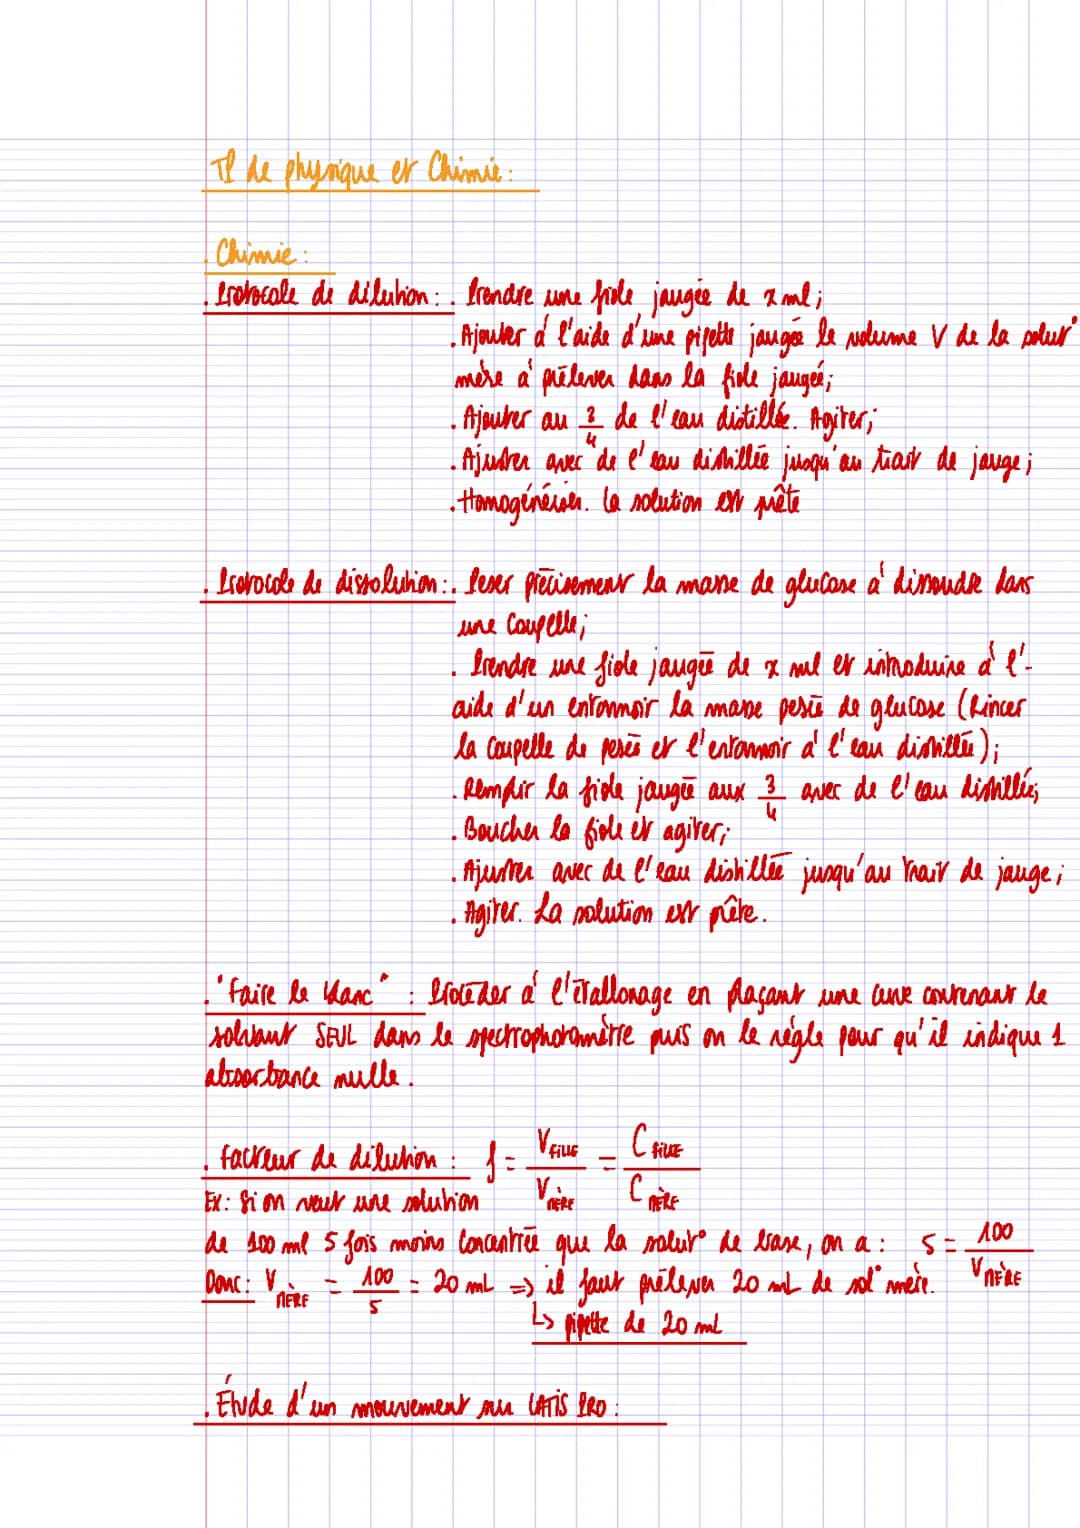 TP de physique et Chimie :
. Chimie :
. Protocole de dilution : . Prendre une fiole jaugée de x ml ;
. Ajouter à l'aide d'une pipette jaugée le volume V de la solut°
mère à prélever dans la fiole jaugée ;
. Ajouter au 3/4 de l'eau distillée. Agiter ;
. Ajuster avec de l'eau distillée jusqu'au trait de jauge ;
. Homogénéiser. La solution est prête
. Protocole de dissolution : . Peser précisement la masse de glucose à dissoudre dans
une Coupelle ;
. Prendre une fiole jaugée de x ml et introduire à l'-
aide d'un entonnoir la masse pesée de glucose (Rincer
la Coupelle de pesée et l'entonnoir à l'eau distillée) ;
. Remplir la fiole jaugée aux 3/4 avec de l'eau distillée ;
. Boucher la fiole et agiter ;
. Ajuster avec de l'eau distillée jusqu'au trait de jauge ;
. Agiter. La solution est prête.
. "Faire le blanc" : Procéder à l'étallonage en plaçant une cuve contenant le
solvant SEUL dans le spectrophotomètre puis on le règle pour qu'il indique 1
absorbance nulle.
. Facteur de dilution : f = V FILLE / V MÈRE = C FILLE / C MÈRE
Ex : Si on veut une solution
de 100 ml 5 fois moins Concentrée que la solut° de base, on a : 5 = 100 / V MÈRE
Donc : V MÈRE = 100 / 5 = 20 mL => il faut prélever 20 mL de sol° mère.
↳ pipette de 20 mL
. Étude d'un mouvement sur LATIS PRO :